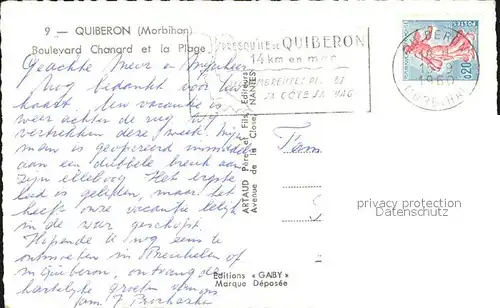 9 — QUIBERON (Morbihan)
Boulevard Chanard et la Plage
PRESQU'ILE DE QUIBERON
14 km en mer
QUIBERON
POSTES
0,20
Geachte Heer en
Nog bedankt voor Uw
kaart. Uw vacantie is
weer achter de rug wij
vertrekken deze week. Mijn
man is geopereerd inmiddels
aan een dubbele breuk aan
zijn elleboog. Het ergste
leed is geleden, maar het
heeft onze vacantie lelijk
in de war geschopt.
Hopende U nog eens te
ontmoeten in Breukelen of
in Quiberon, ontvang de
hartelijke groeten van ons
fam.
Fam.
ARTAUD Père et Fils, Editeurs
Avenue de la Close, NANTES
Editions « GABY »
Marque Déposée
privacy protection
Datenschutz